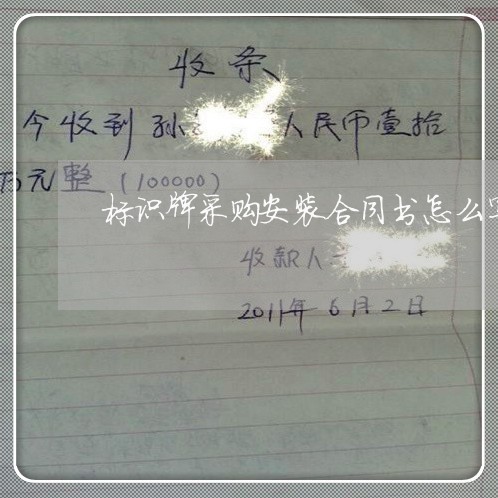 收条
今收到孙 人民币壹拾
万元整（100000）
标识牌采购安装合同书怎么
收款人
2011年6月2日